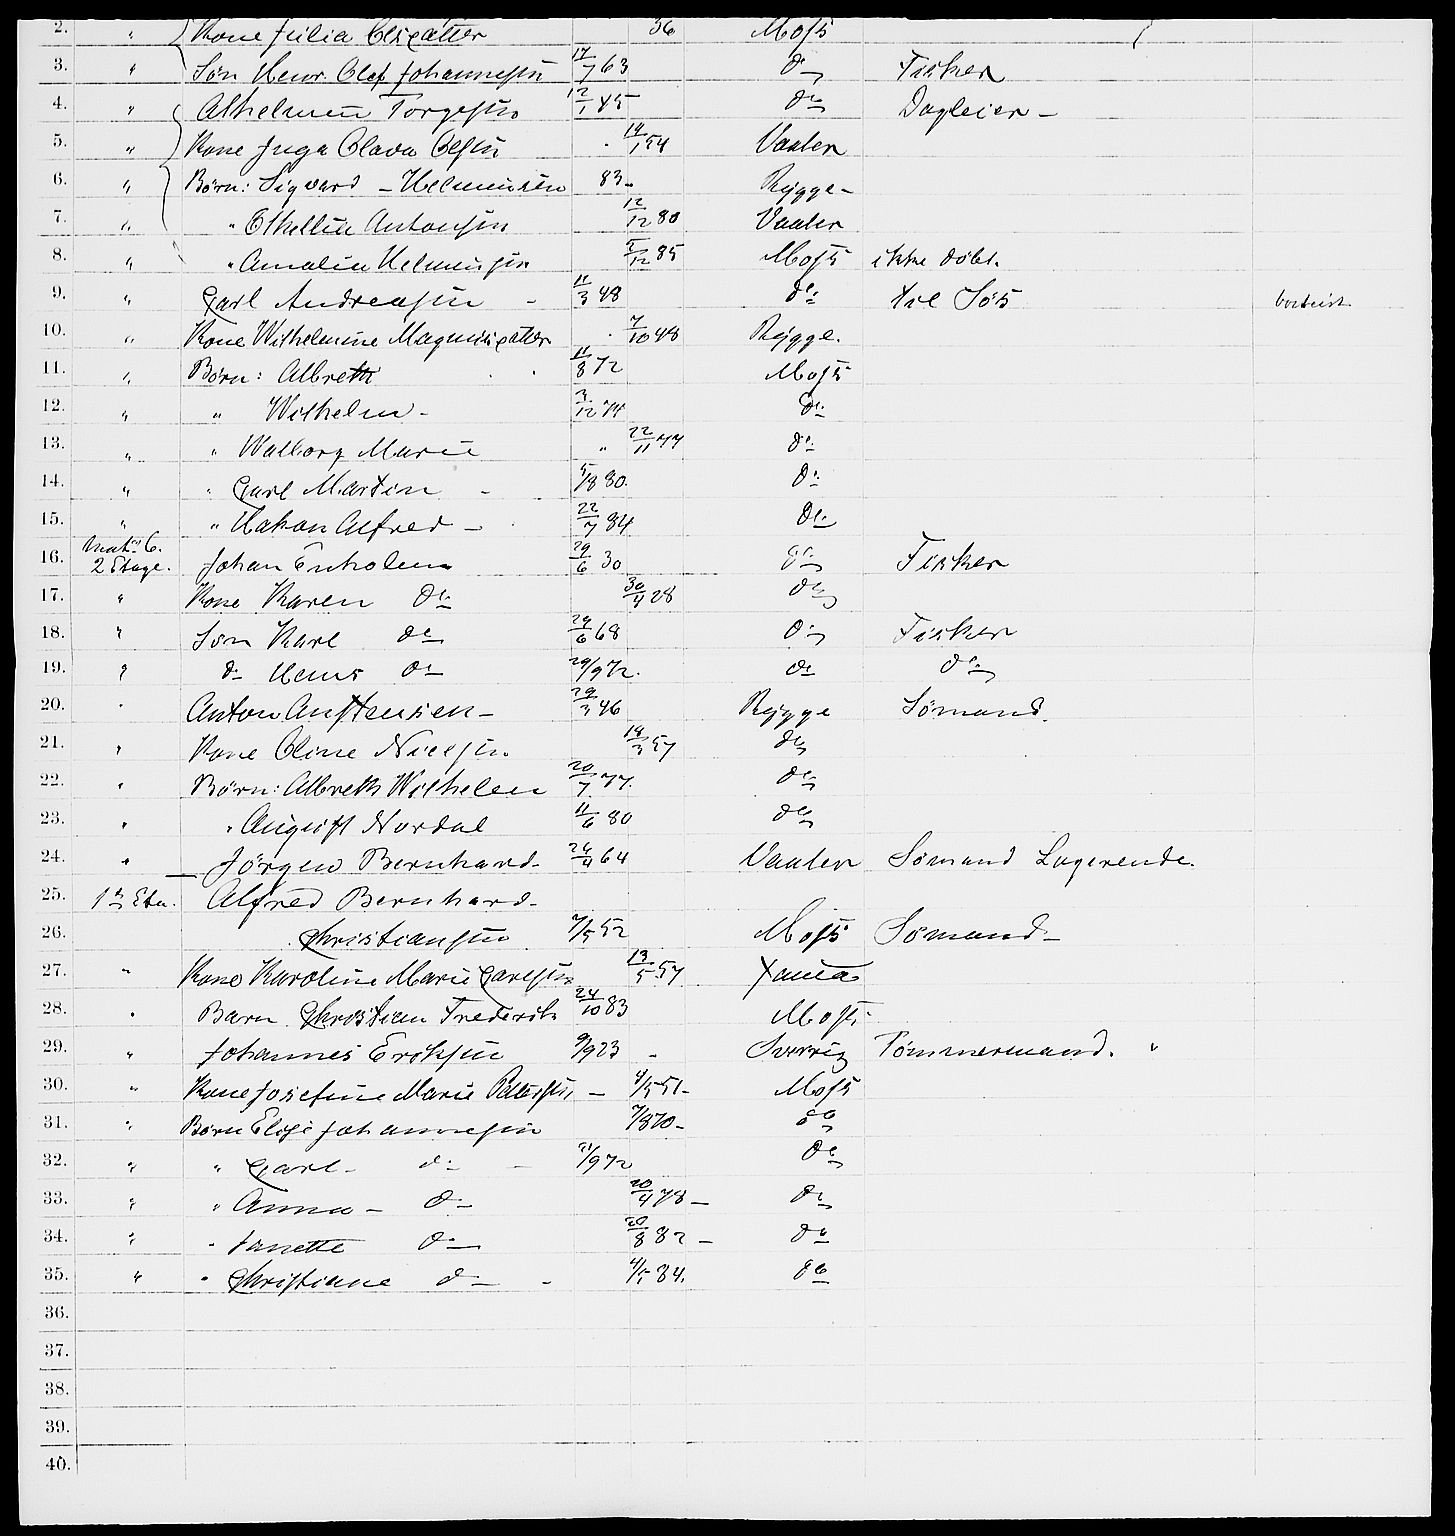 2. " Kone Julia 36 Moss
3. " Søn Henr. Olaf Johannesen 17/7 63 do Fisker
4. " Athelmin Torgesen 12/1 45 do Dagleier -
5. " Kone Inga Olava Olsen 14/1 54 Vaaler
6. " Børn: Sigvard - Helminsen 83. Rygge -
7. " " Othellia Antonsen 12/12 80 Vaaler
8. " " Amalia Helminsen 5/12 85 Moss ikke døbt.
9. " Carl Andreasen - 11/3 48 do til Søs bortreist
10. " Kone Wilhelmine Magnusdatter 7/10 48 Rygge.
11. " Børn: Albreth 11/8 72 Moss
12. " " Wilhelm - 3/12 74 do
13. " " Walborg Marie " 22/11 77 do
14. " " Carl Martin - 5/8 80. do
15. " " Hakon Alfred - 22/7 84 do
Mat. 6.
16. 2 Etage. Johan Enholm 29/6 30 do Fisker
17. " Kone Karen do 30/4 28 do
18. " Søn Karl do 24/6 68 do Fisker
19. " do Hans do 29/9 72. do do
20. " Anton Anstensen - 29/3 46 Rygge Sømand.
21. " Kone Oline Nielsen 18/3 57 do
22. " Børn: Albreth Wilhelm 20/7 77. do
23. " " August Nordal 11/6 80 do
24. " Jørgen Bernhard - 26/4 64 Vaaler Sømand Logerende.
25. 1ste Eta. Alfred Bernhard -
26. Christiansen 7/5 52 Moss Sømand -
27. " Kone Karoline Marie Carlsen 13/5 57
28. " Barn Christian Frederik 24/10 83 Moss
29. " Johannes Eriksen 9/9 23 - Sverrig Tømmermand. "
30. " Kone Josefine Marie Pettersen, - 4/5 51 - Moss
31. " Børn Elise Johannesen 7/8 70 - do
32. " " Carl - do - 21/9 72 do
33. " " Anna - do 20/4 78 - do
34. " " Janette do 20/8 82 - do
35. " " Christiane do - 4/5 84. do
36.
37.
38.
39.
40.